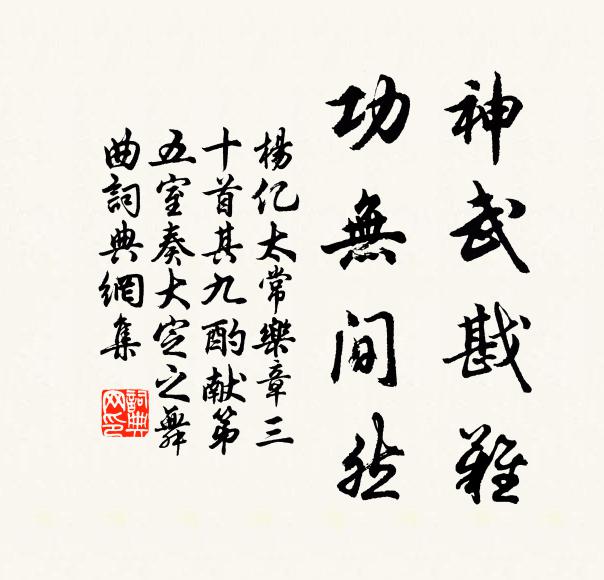 神武戡難
功無間然
楊亿太常樂章三
十首其九酌献第
五室奏大定之舞
曲詞典網集
詞典
网印